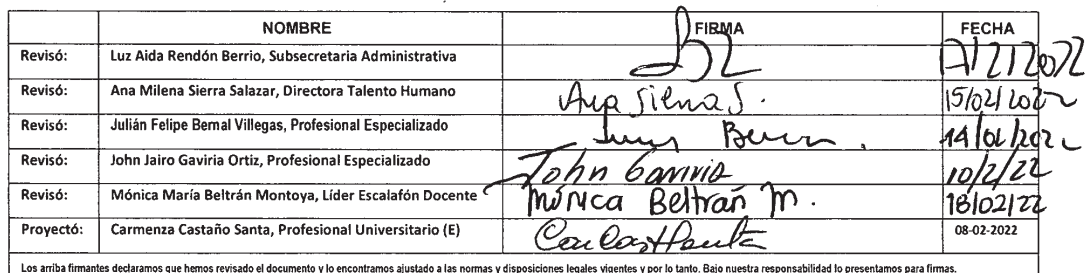 NOMBRE FIRMA FECHA
Revisó: Luz Aida Rendón Berrio, Subsecretaria Administrativa 17/2/2022
Revisó: Ana Milena Sierra Salazar, Directora Talento Humano Ana Sierra S. 15/02/2022
Revisó: Julián Felipe Bernal Villegas, Profesional Especializado
Revisó: John Jairo Gaviria Ortiz, Profesional Especializado John Gaviria 10/2/22
Revisó: Mónica María Beltrán Montoya, Líder Escalafón Docente Mónica Beltrán M. 18/02/22
Proyectó: Carmenza Castaño Santa, Profesional Universitario (E) 08-02-2022
Los arriba firmantes declaramos que hemos revisado el documento y lo encontramos ajustado a las normas y disposiciones legales vigentes y por lo tanto. Bajo nuestra responsabilidad lo presentamos para firmas.